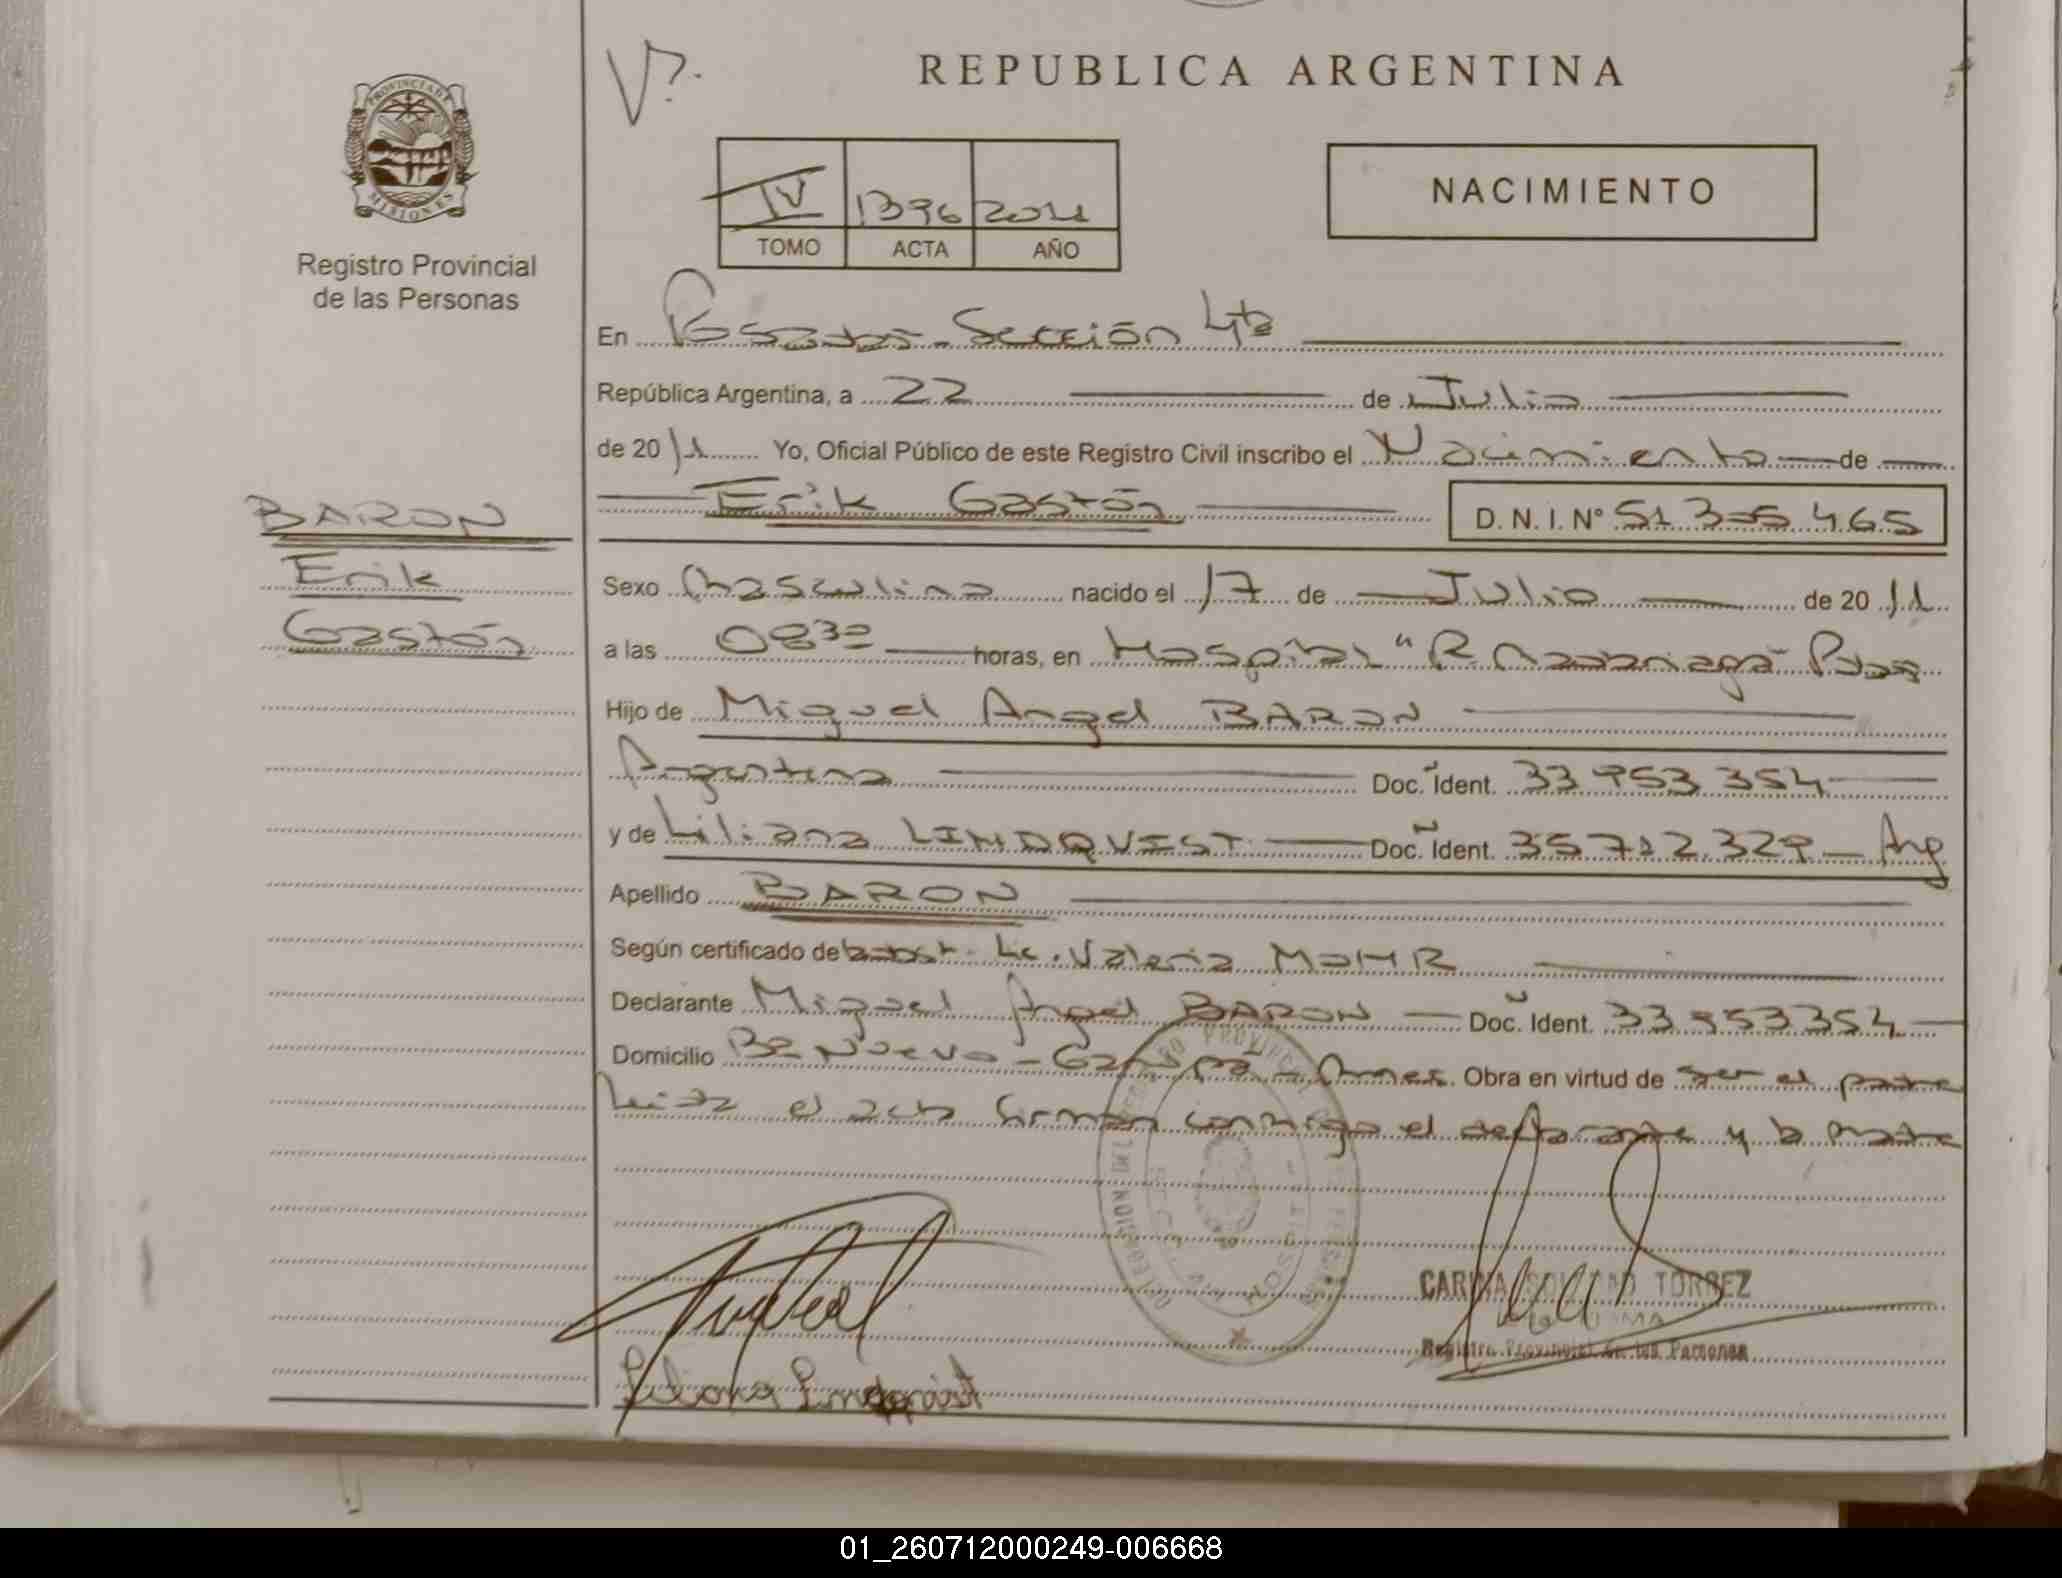 REPUBLICA ARGENTINA
PROVINCIA DE
MISIONES
Registro Provincial
de las Personas
IV 1396 2011
TOMO ACTA AÑO
NACIMIENTO
En Posadas - Sección 4ta
República Argentina, a 22 de Julio
de 2011 Yo, Oficial Público de este Registro Civil inscribo el Nacimiento de
Erik Gastón D. N. I. N° 51 355 465
BARON
Erik
Gastón
Sexo Masculino nacido el 17 de Julio de 2011
a las 08 30 horas, en Hospital "R. Madariaga" Pdas
Hijo de Miguel Angel BARON
Argentina Doc. Ident. 33 953 354
y de Liliana LINDQVIST Doc. Ident. 35 712 329 - Arg
Apellido BARON
Según certificado de obst. Lic. Valeria MOHR
Declarante Miguel Angel BARON Doc. Ident. 33 953 354
Domicilio Bº Nuevo - Garupá - Mnes. Obra en virtud de ser el padre
Leida el acta firman conmigo el declarante y la madre
CARINA SOLEDAD TORREZ
Registro Provincial de las Personas
Liliana Lindqvist
01_260712000249-006668